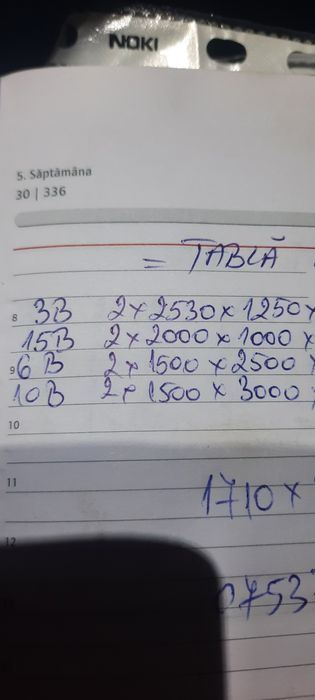 NOKI
5. Săptămâna
30 | 336
= TABLĂ
8 3B 2x2530x1250x
15B 2x2000x1000x
9 6B 2x1500x2500x
10B 2x1500x3000x
10
11
1710x
12
0753